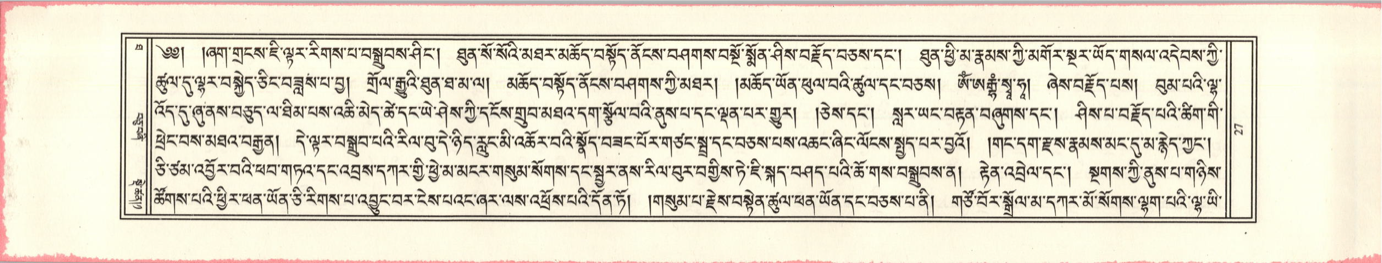 ༄༅། །ཞག་གྲངས་ཇི་ལྟར་རིགས་པ་བསྒྲུབས་ཤིང་། ཐུན་སོ་སོའི་མཐར་མཆོད་བསྟོད་ནོངས་བཤགས་བསྔོ་སྨོན་ཤིས་བརྗོད་བཅས་དང་། ཐུན་ཕྱི་མ་རྣམས་ཀྱི་མགོར་སྔར་ཡོད་གསལ་འདེབས་ཀྱི་
ཚུལ་དུ་ལྷར་བསྐྱེད་ཅིང་བཟླས་པ་བྱ། གྲོལ་རྒྱུའི་ཐུན་ཐ་མ་ལ། མཆོད་བསྟོད་ནོངས་བཤགས་ཀྱི་མཐར། །མཆོད་ཡོན་ཕུལ་བའི་ཚུལ་དང་བཅས། ཨོཾ་ཨ་རྒྷཾ་སྭཱ་ཧཱ། ཞེས་བརྗོད་པས། བུམ་པའི་ལྷ་
འོད་དུ་ཞུ་ནས་བཅུད་ལ་ཐིམ་པས་འཆི་མེད་ཚེ་དང་ཡེ་ཤེས་ཀྱི་དངོས་གྲུབ་མཐའ་དག་སྩོལ་བའི་ནུས་པ་དང་ལྡན་པར་གྱུར། །ཅེས་དང་། སླར་ཡང་བརྟན་བཞུགས་དང་། ཤིས་པ་བརྗོད་པའི་ཚིག་གི་
ཕྲེང་བས་མཐའ་བརྒྱན། དེ་ལྟར་བསྒྲུབ་པའི་རིལ་བུ་དེ་ཉིད་རླུང་མི་འཆོར་བའི་སྣོད་བཟང་པོར་གཙང་སྦྲ་དང་བཅས་པས་འཆང་ཞིང་ལོངས་སྤྱད་པར་བྱའོ། །གང་དག་རྫས་རྣམས་མང་དུ་མ་རྙེད་ཀྱང་།
ཅི་ཙམ་འབྱོར་བའི་ཕབ་གཏའ་དང་འབྲས་དཀར་གྱི་ཕྱེ་མ་མངར་གསུམ་སོགས་དང་སྦྱར་ནས་རིལ་བུར་བགྱིས་ཏེ་ཇི་སྐད་བཤད་པའི་ཆོ་གས་བསྒྲུབས་ན། རྟེན་འབྲེལ་དང་། སྔགས་ཀྱི་ནུས་པ་གཉིས་
ཚོགས་པའི་ཕྱིར་ཕན་ཡོན་ཅི་རིགས་པ་འབྱུང་བར་ངེས་པའང་ཞར་ལས་འཕྲོས་པའི་དོན་ཏོ། །གསུམ་པ་རྗེས་བསྟེན་ཚུལ་ཕན་ཡོན་དང་བཅས་པ་ནི། གཙོ་བོར་སྒྲོལ་མ་དཀར་མོ་སོགས་ལྷག་པའི་ལྷ་ཡི་
27